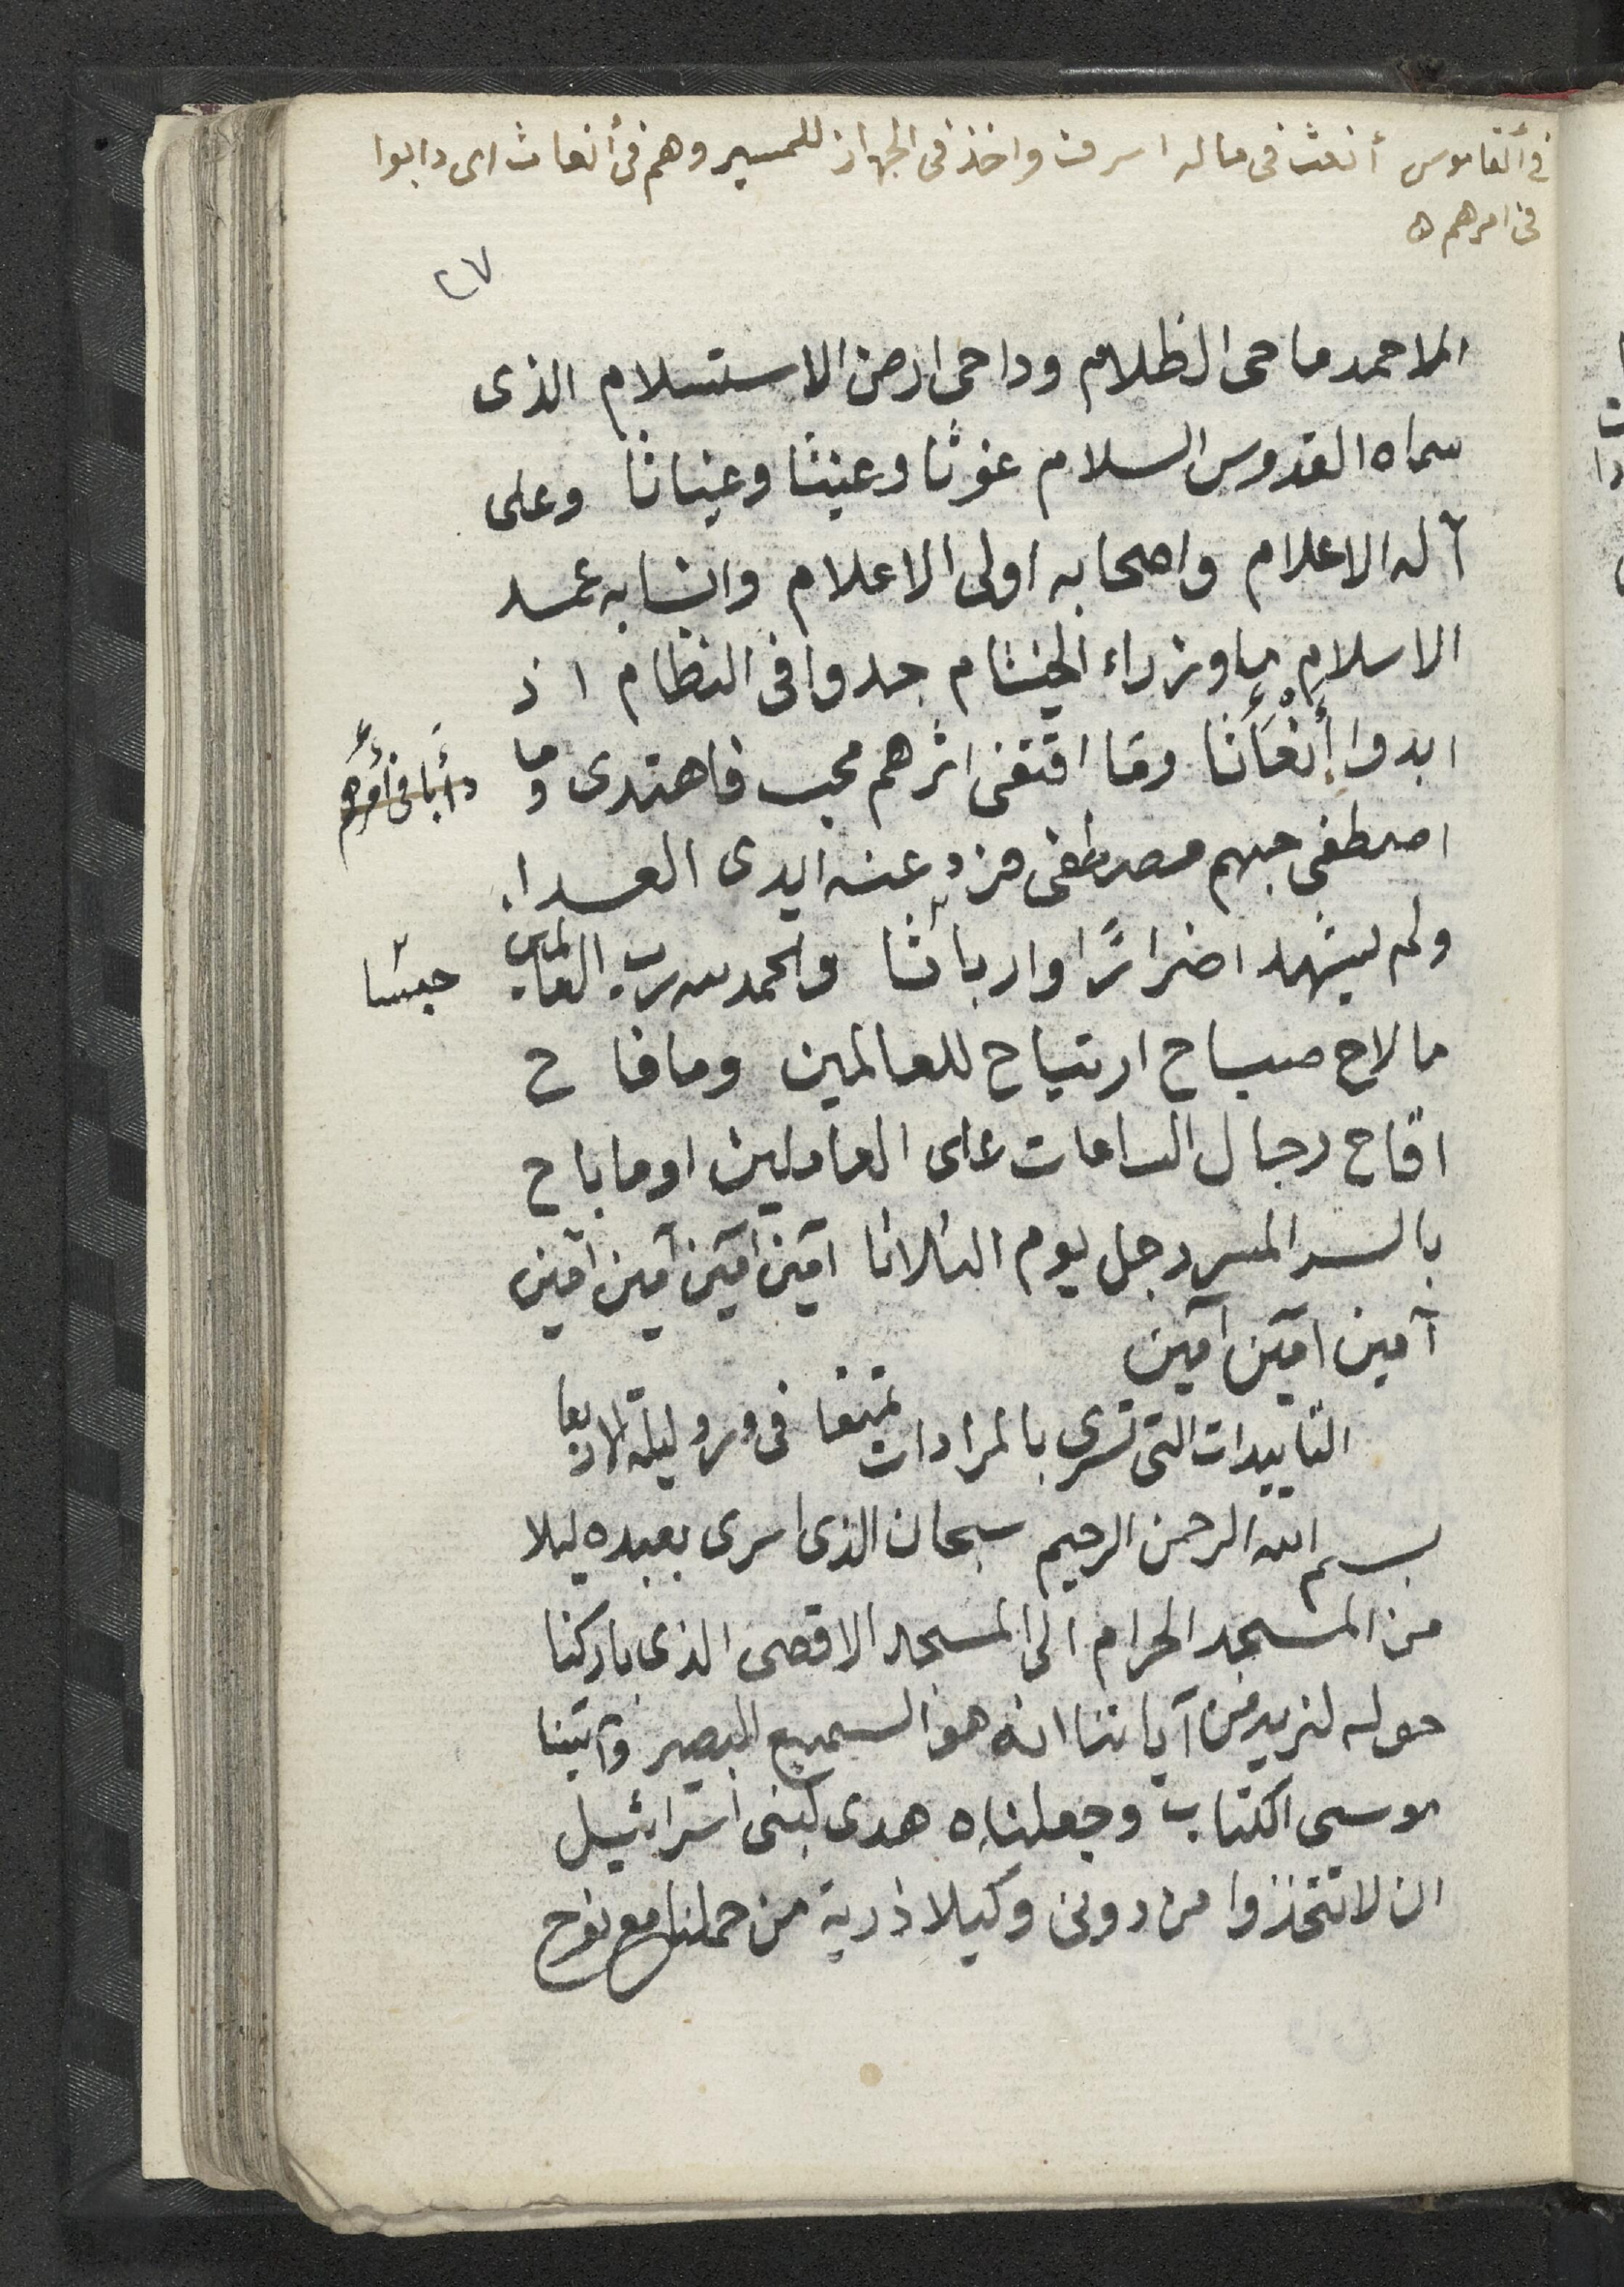 في القاموس أنغث في ماله اسرف واخذ في الجهاز للمسير وهم في أنغاث اى دابوا
في امرهم ه
٢٧
الملاحمد ماحى الظلام وداحى ارض الاستسلام الذى
سماه القدوس السلام غوثا وغيثا وغياثا وعلى
آله الاعلام واصحابه اولى الاعلام وانسابه عمد
الاسلام ما وزراء الختام جدوا في النظام اذ
ابدوا أنغأثا وما اقتفى اثرهم محب فاهتدى وما
دأبا في أمرهم
اصطفى حبهم مصطفى فرد عنه ايدى العدا
ولم يشهد اضرارًا وارباثا والحمد لله رب العالمين
حبسًا
ما لاح صباح ارتياح للعالمين وما فاح
اقاح رجال الساعات على العاملين او ما باح
بالسر المسر رجل يوم الثلاثا آمين آمين آمين آمين
آمين آمين آمين
التاييدات التى تسرى بالمرادات تمتعا فى ورد ليلة الاربعا
بسم الله الرحمن الرحيم سبحان الذى اسرى بعبده ليلا
من المسجد الحرام الى المسجد الاقصى الذى باركنا
حوله لنريه من آياتنا انه هو السميع البصير وآتينا
موسى الكتاب وجعلناه هدى لبنى اسرائيل
ان لا تتخذوا من دونى وكيلا ذرية من حملنا مع نوح